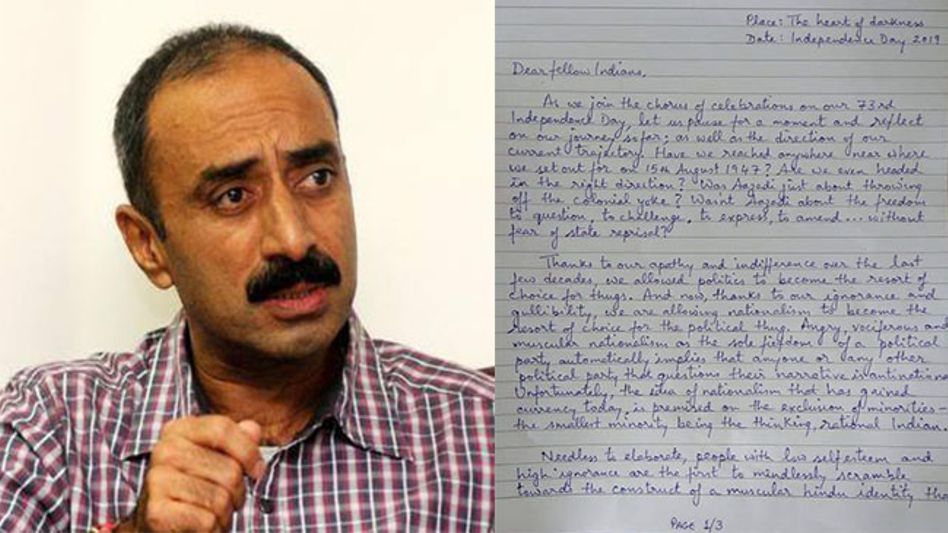 Place: The heart of darkness
Date: Independence Day 2019
Dear fellow Indians,
As we join the chorus of celebrations on our 73rd
Independence Day, let us pause for a moment and reflect
on our journey, so far; as well as the direction of our
current trajectory. Have we reached anywhere near where
we set out for on 15th August 1947? Are we even headed
in the right direction? Was Aazadi just about throwing
off the colonial yoke? Wasn't Aazadi about the freedom
to question, to challenge, to express, to amend... without
fear of state reprisal?
Thanks to our apathy and indifference over the last
few decades, we allowed politics to become the resort of
choice for thugs. And now, thanks to our ignorance and
gullibility, we are allowing nationalism to become the
resort of choice for the political thug. Angry, vociferous an
muscular nationalism as the sole fiefdom of a political
party automatically implies that anyone or any other
political party that questions their narrative is antination
Unfortunately, the idea of nationalism that has gained
currency today, is premised on the exclusion of minorities-
the smallest minority being the thinking, rational Indian.
Needless to elaborate, people with low self esteem and
high ignorance are the first to mindlessly scramble
towards the construct of a muscular hindu identity tha
PAGE 1/3